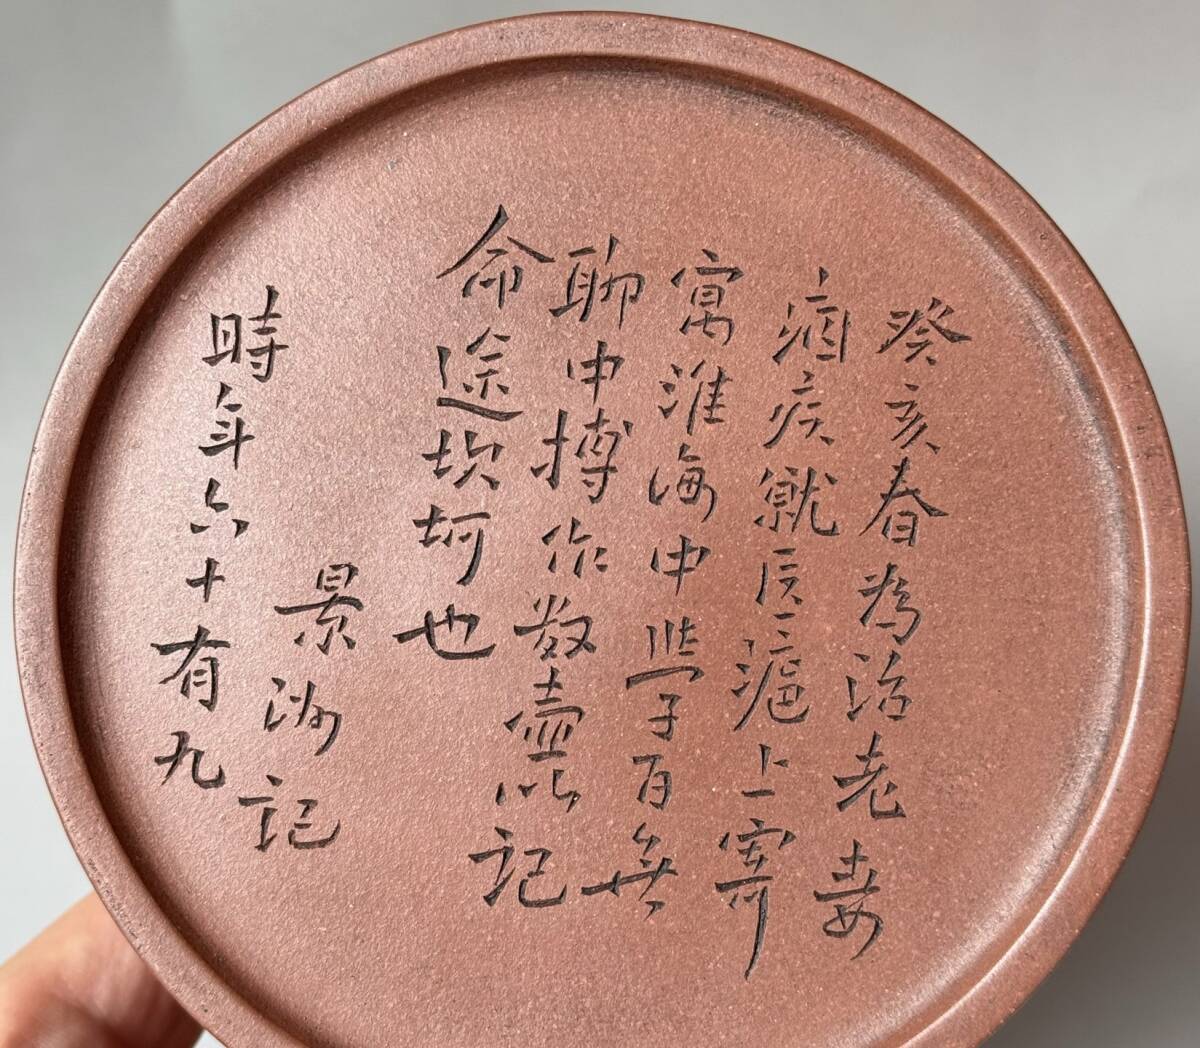 癸亥春為治老妻
痼疾就医滬上寄
寓淮海中學百無
聊中摶作数壺以記
命途坎坷也
景洲記
時年六十有九